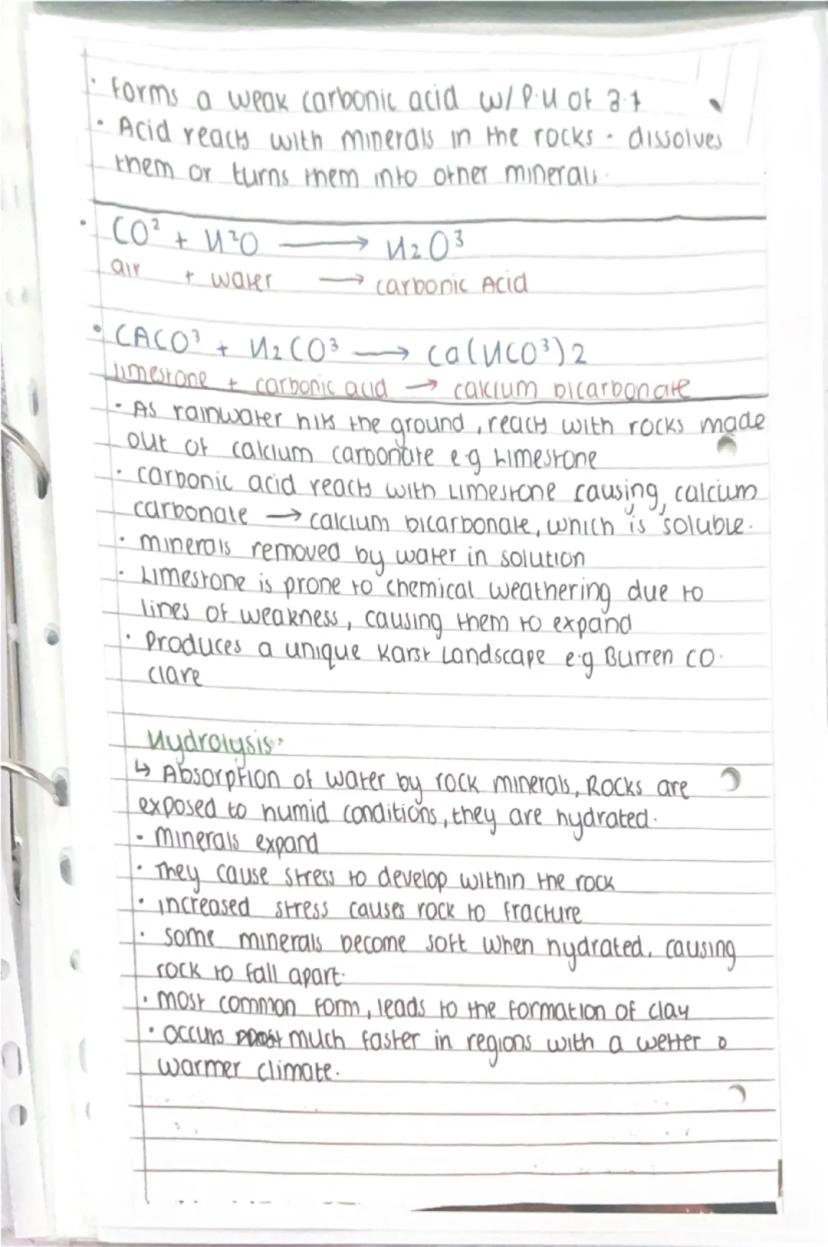 · Forms a weak carbonic acid w/ P.H of 3.7
· Acid reacts with minerals in the rocks - dissolves
them or turns them into other minerals.
· CO² + H²O ⟶ H₂O³
air + water ⟶ carbonic Acid
· CACO³ + H₂CO³ ⟶ ca(HCO³)2
limestone + carbonic acid → calcium bicarbonate
· As rainwater hits the ground, reacts with rocks made
out of calcium carbonate e.g Limestone
· carbonic acid reacts with Limestone causing, calcium
carbonate → calcium bicarbonate, which is soluble.
· minerals removed by water in solution
· Limestone is prone to chemical weathering due to
lines of weakness, causing them to expand
· Produces a unique Karst Landscape e.g Burren CO.
Clare
Hydrolysis:
↳ Absorption of water by rock minerals, Rocks are
exposed to humid conditions, they are hydrated.
· minerals expand
· They cause stress to develop within the rock
· increased stress causes rock to fracture
· some minerals become soft when hydrated, causing
rock to fall apart.
· most common form, leads to the formation of clay
· occurs much faster in regions with a wetter &
warmer climate.